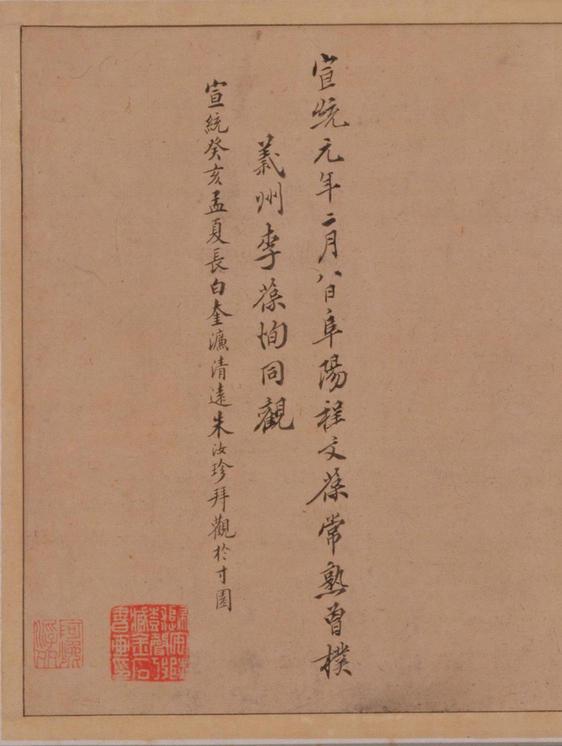 宣統元年二月八日阜陽程文葆常熟曾樸
義州李葆恂同觀
宣統癸亥孟夏長白奎濂清遠朱汝珍拜觀於寸園